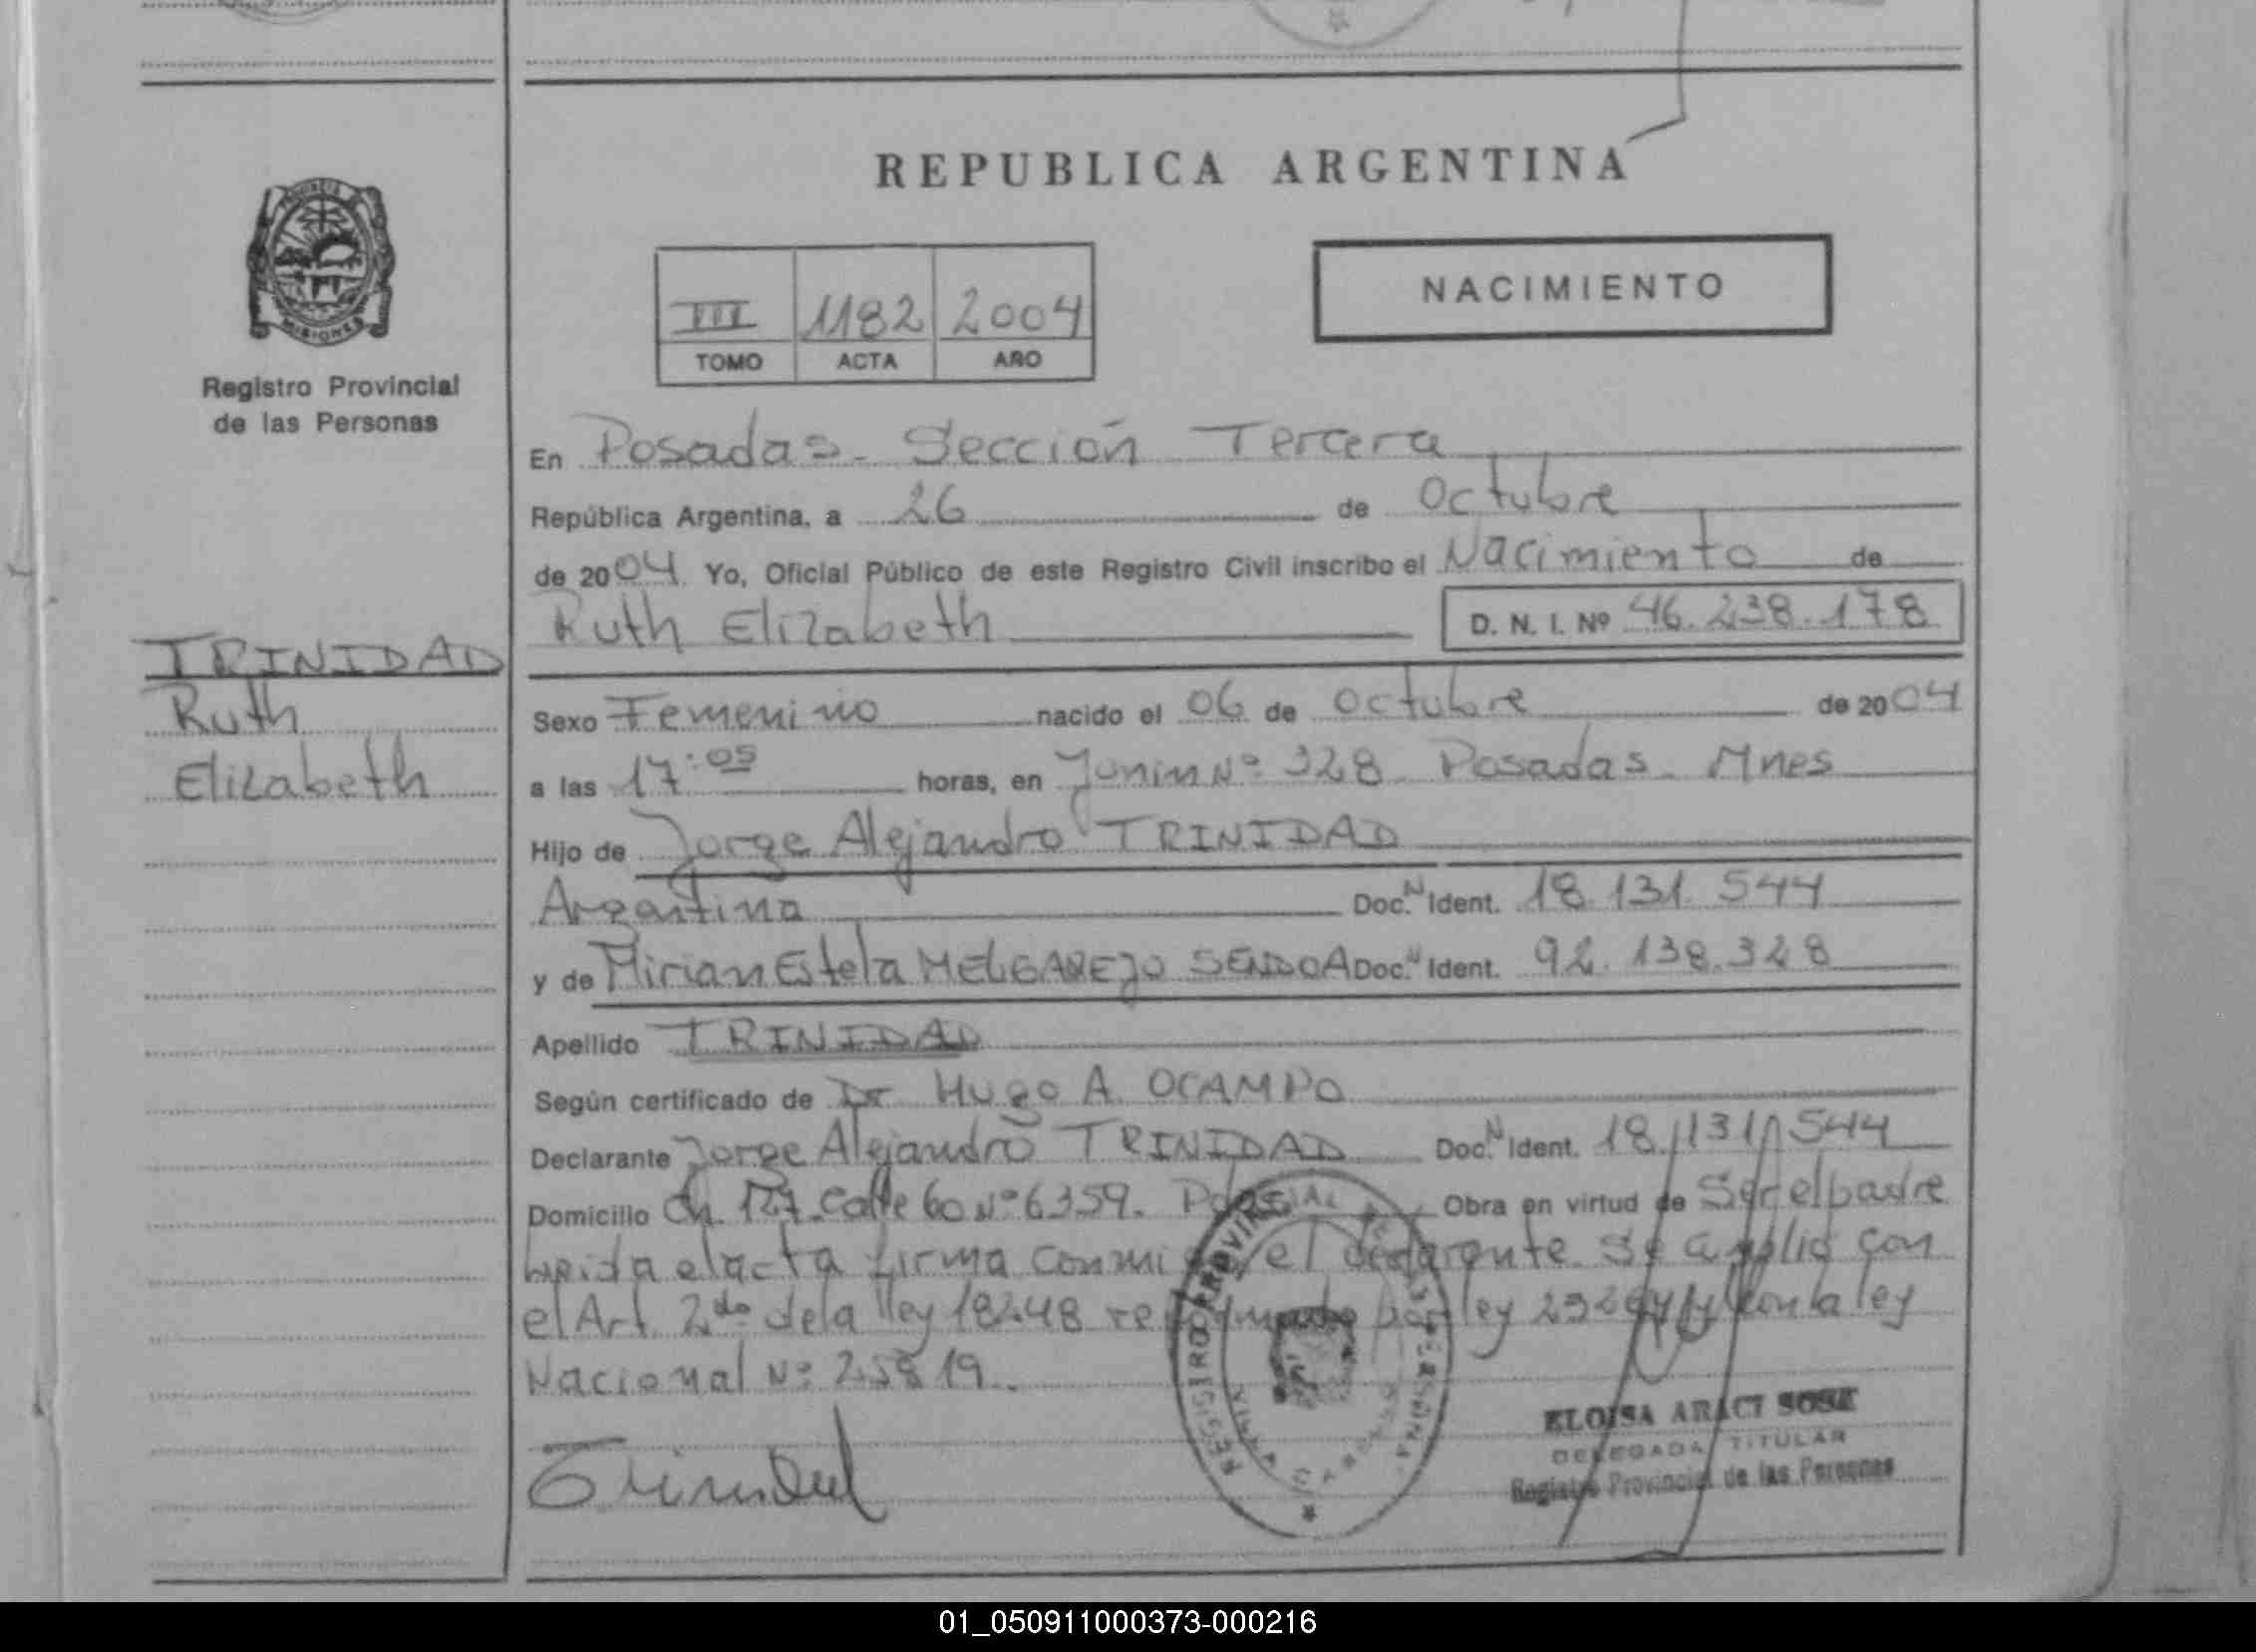 REPUBLICA ARGENTINA
NACIMIENTO
III 1182 2004
TOMO ACTA AÑO
MISIONES
Registro Provincial
de las Personas
TRINIDAD
Ruth
Elizabeth
En Posadas - Sección Tercera
República Argentina, a 26 de Octubre
de 2004. Yo, Oficial Público de este Registro Civil inscribo el Nacimiento de
Ruth Elizabeth D. N. I. Nº 46.238.178
Sexo Femenino nacido el 06 de Octubre de 2004
a las 17:05 horas, en Junin Nº 328 Posadas - Mnes
Hijo de Jorge Alejandro TRINIDAD
Argentino Doc. N Ident. 18.131.544
y de Mirian Estela MELGAREJO SENDOA Doc. N Ident. 92.138.328
Apellido TRINIDAD
Según certificado de Dr Hugo A. OCAMPO
Declarante Jorge Alejandro TRINIDAD Doc. N Ident. 18.131.544
Domicilio Ch. 127 Calle 60 Nº 6359. Pdas Obra en virtud de Ser el padre
leida el acta firma conmigo el declarante. Se amplio con
el Art. 2do de la ley 18248 por ley y con la ley
Nacional Nº 25819.
REGISTRO PROVINCIAL DE LAS PERSONAS
ELOISA ARACI SOSA
DELEGADA TITULAR
Registro Provincial de las Personas
01_050911000373-000216